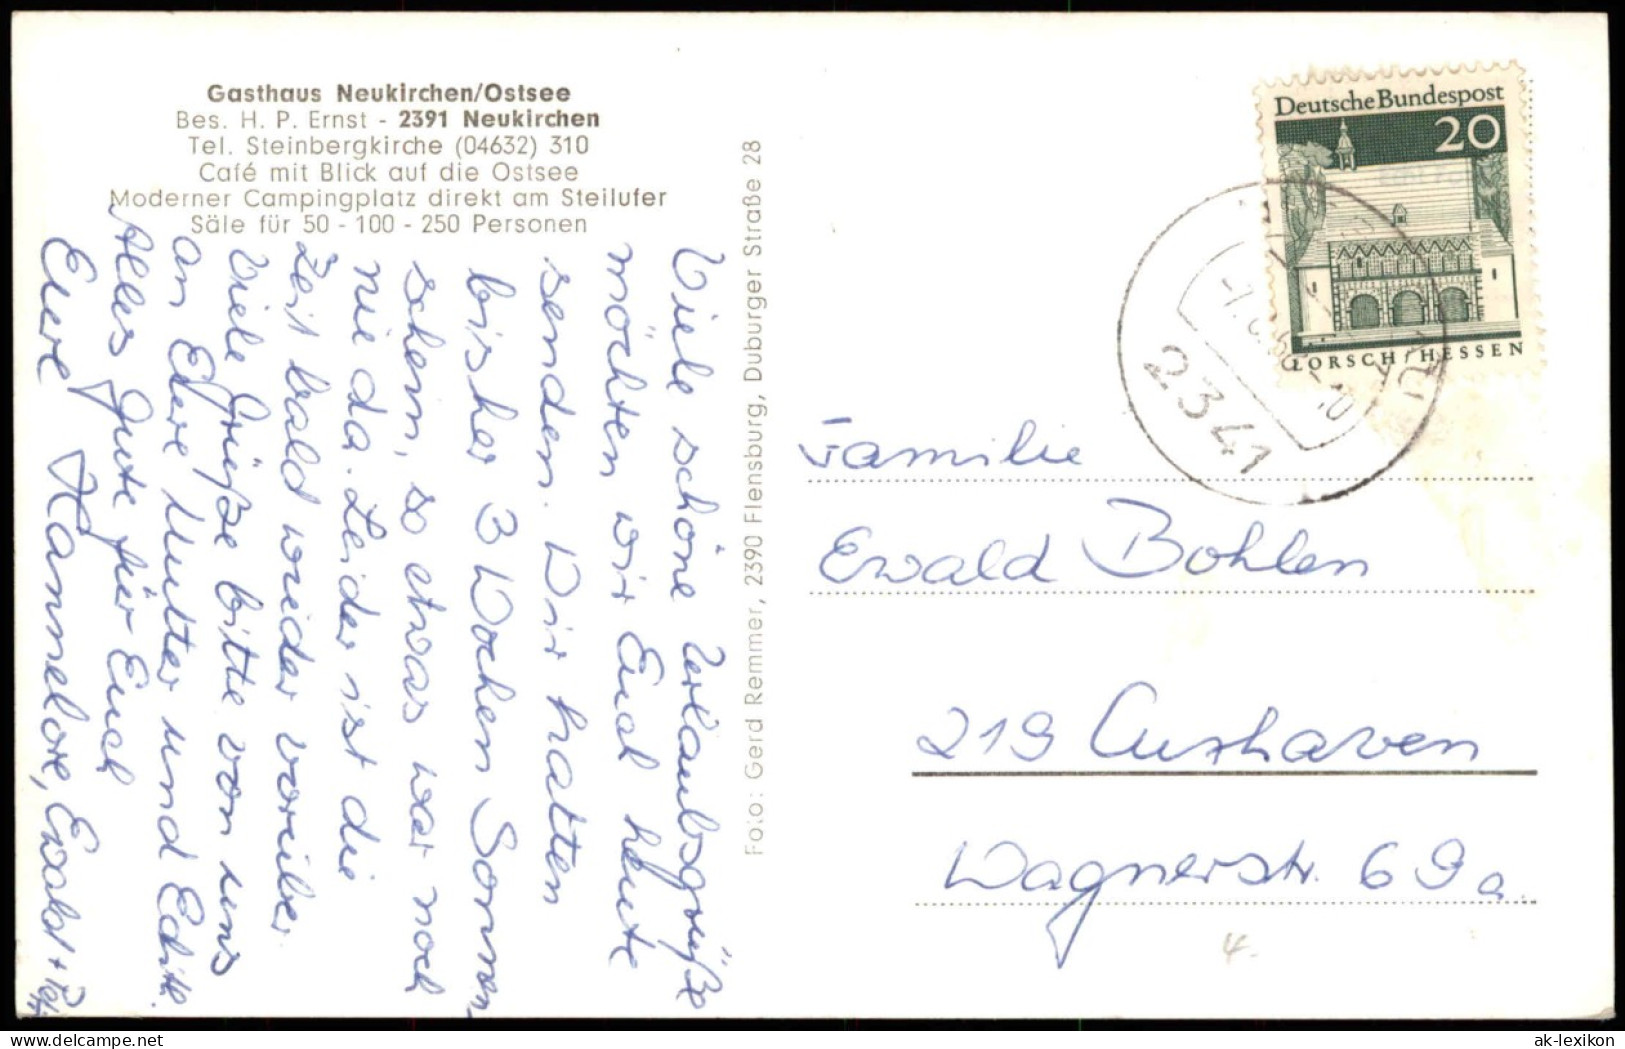 Gasthaus Neukirchen/Ostsee
Bes. H. P. Ernst - 2391 Neukirchen
Tel. Steinbergkirche (04632) 310
Café mit Blick auf die Ostsee
Moderner Campingplatz direkt am Steilufer
Säle für 50 - 100 - 250 Personen
Viele schöne Urlaubsgrüße
möchten wir Euch heute
senden. Wir hatten
bisher 3 Wochen Sonnen
schein, so etwas war noch
nie da. Leider ist die
Zeit bald wieder vorüber.
Viele Grüße bitte von uns
an Eure Mutter und Edith.
Alles Gute für Euch
Eure Hannelore, Ewald +
Foto: Gerd Remmer, 2390 Flensburg, Duburger Straße 28
Deutsche Bundespost
20
LORSCH/HESSEN
2341
Familie
Ewald Bohlen
219 Cuxhaven
Wagnerstr. 69a
4.
ak-lexikon